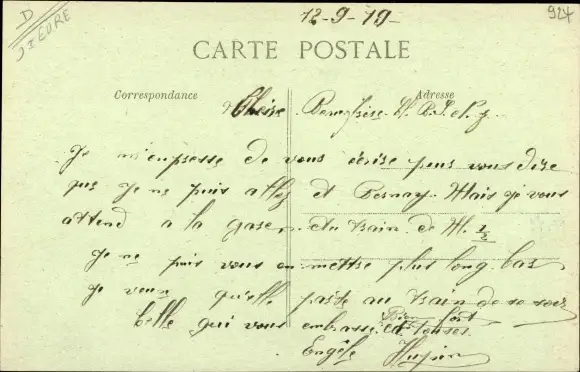 D
27 EURE
12-9-19-
924
CARTE POSTALE
Correspondance
Adresse
Je m'enpresse de vous écrire pour vous dire
que je ne puis allez et Bernay. Mais je vous
attend a la gare du train de H. 1/2
Je ne puis vous en mettre plus long car
je veux qu'elle parte au train de se soir
Celle qui vous embrasse Bien fort
et
Engèle